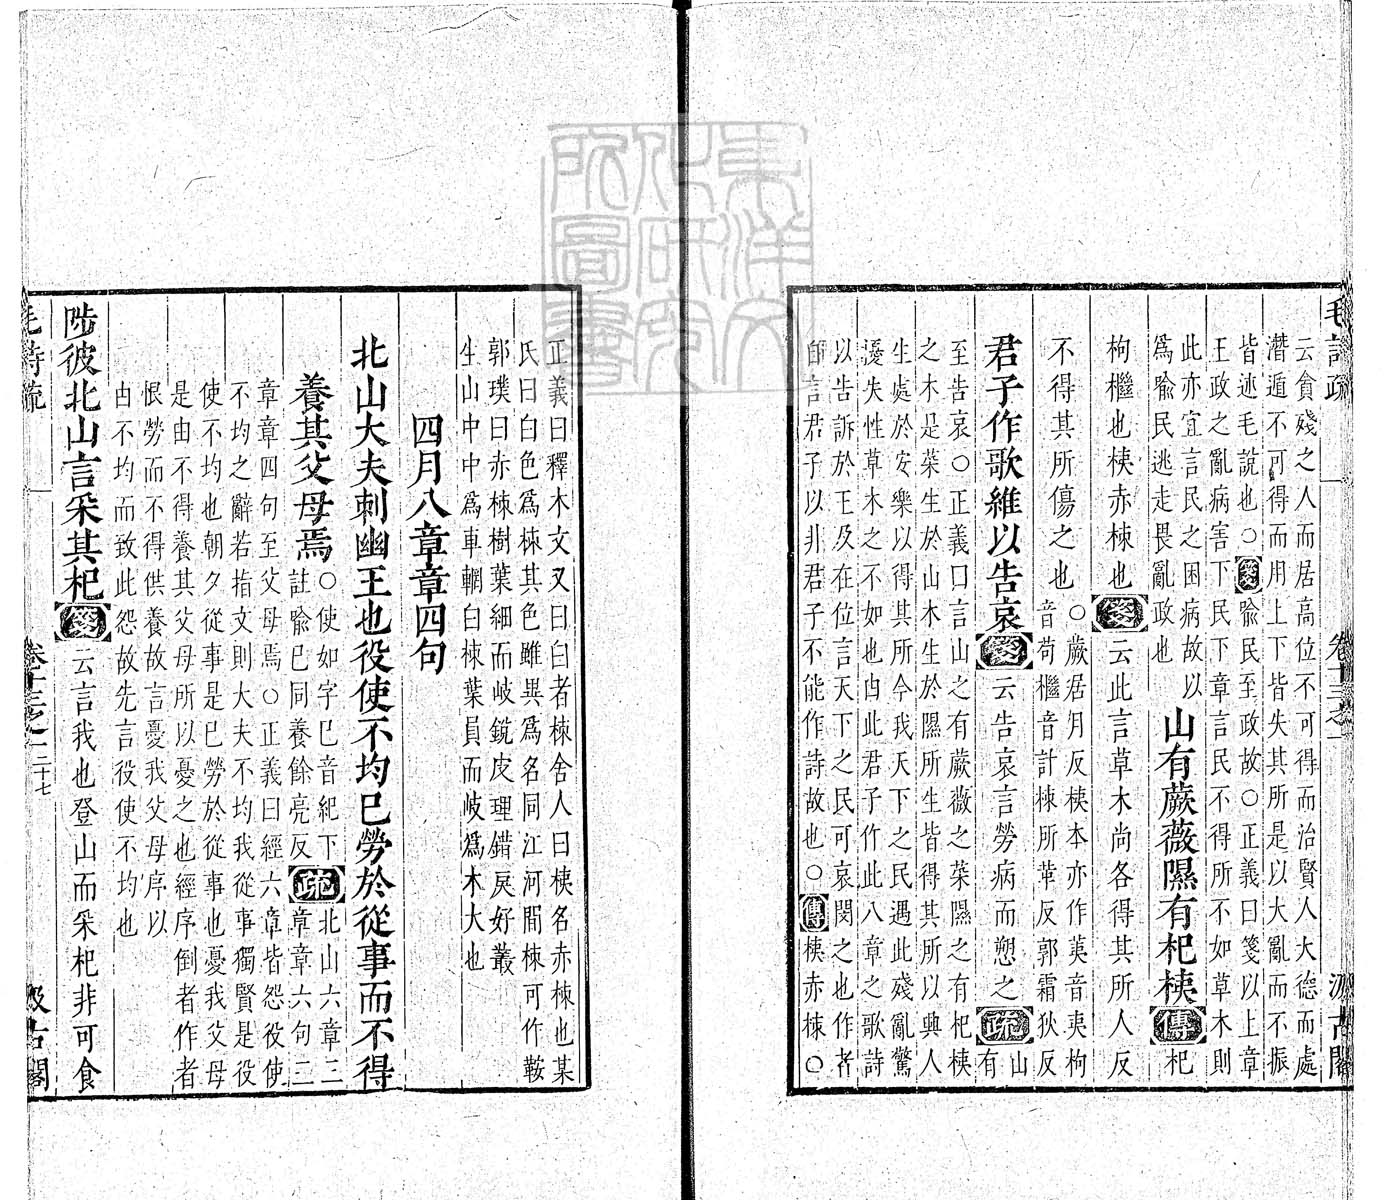 毛詩疏
卷十三之一
汲古閣
云貪殘之人而居高位不可得而治賢人大德而處
潛遁不可得而用上下皆失其所是以大亂而不振
皆述毛說也○箋喻民至政故○正義曰箋以上章
王政之亂病害下民下章言民不得所不如草木則
此亦宜言民之困病故以
爲喻民逃走畏亂政也
山有蕨薇隰有杞桋傳杞
枸檵也桋赤楝也箋云此言草木尚各得其所人反
不得其所傷之也
○蕨居月反桋本亦作荑音夷枸
音苟檵音計楝所革反郭霜狄反
君子作歌維以告哀箋云告哀言勞病而愬之疏
山
有
至告哀○正義曰言山之有蕨薇之菜隰之有杞桋
之木是菜生於山木生於隰所生皆得其所以興人
生處於安樂以得其所今我天下之民遇此殘亂驚
擾失性草木之不如也由此君子作此八章之歌詩
以告訴於王及在位言天下之民可哀閔之也作者
師言君子以非君子不能作詩故也○傳桋赤楝○
正義曰釋木文又曰白者楝舍人曰桋名赤楝也某
氏曰白色爲楝其色雖異爲名同江河間楝可作鞍
郭璞曰赤楝樹葉細而岐銳皮理錯戾好叢
生山中中爲車輞白楝葉員而岐爲木大也
四月八章章四句
北山大夫刺幽王也役使不均已勞於從事而不得
養其父母焉
○使如字已音紀下
註喻已同養餘亮反
疏
北山六章三
章章六句三
章章四句至父母焉○正義曰經六章皆怨役使
不均之辭若指文則大夫不均我從事獨賢是役
使不均也朝夕從事是已勞於從事也憂我父母
是由不得養其父母所以憂之也經序倒者作者
恨勞而不得供養故言憂我父母序以
由不均而致此怨故先言役使不均也
陟彼北山言采其杞箋云言我也登山而采杞非可食
毛詩疏
卷十三之一
二十七
汲古閣